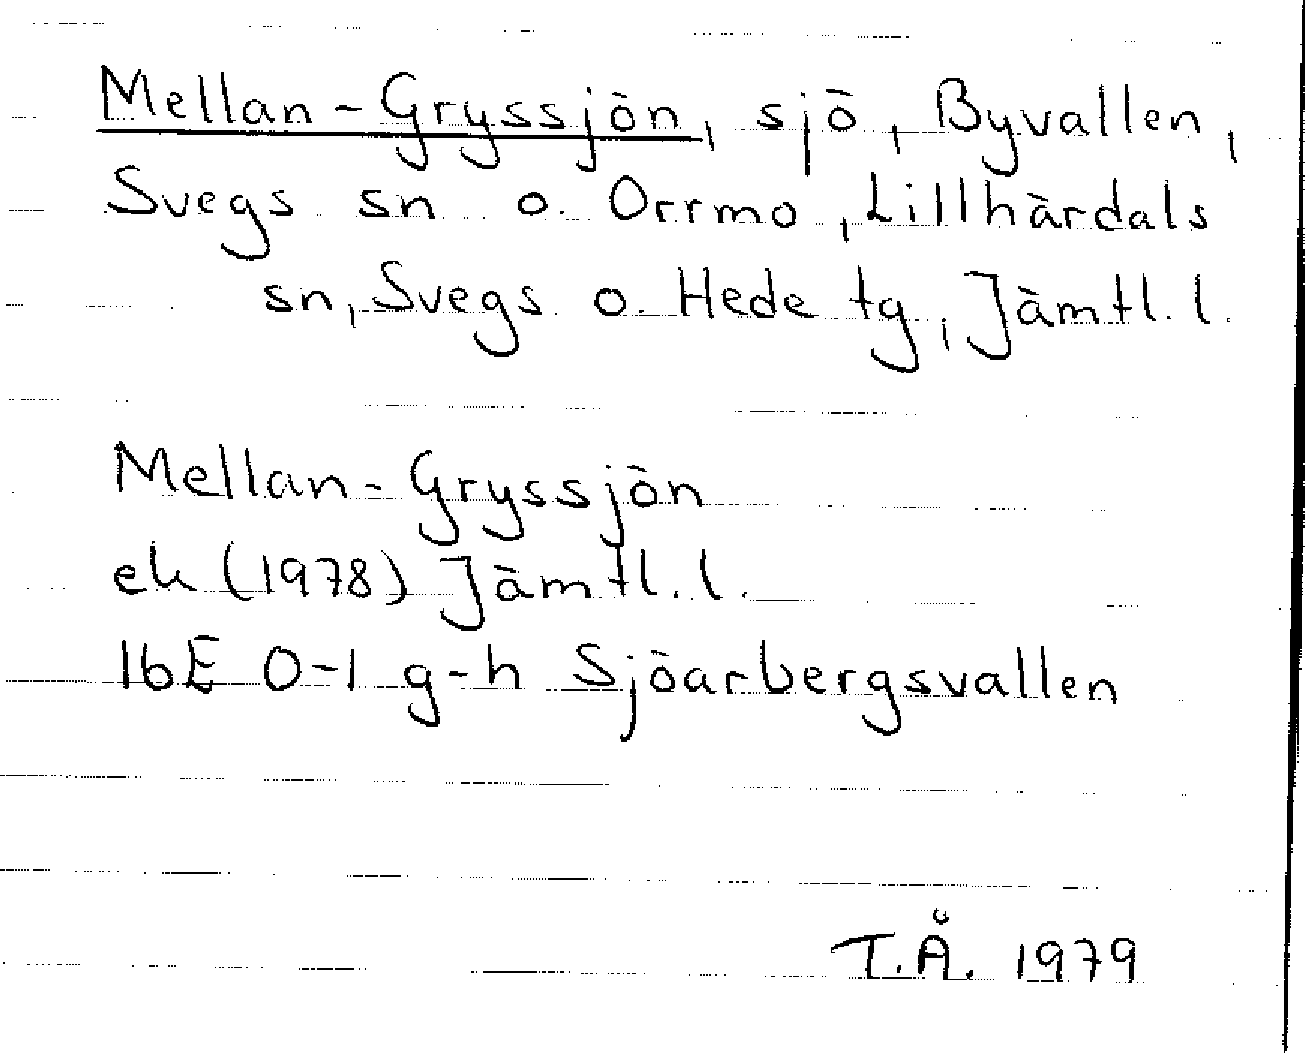 Mellan-Gryssjön, sjö, Byvallen,
Svegs sn o. Orrmo, Lillhärdals
sn, Svegs o. Hede tg, Jämtl. l.
Mellan-Gryssjön
ek (1978) Jämtl. l.
16E 0-1 g-h Sjöarbergsvallen
T.Å. 1979